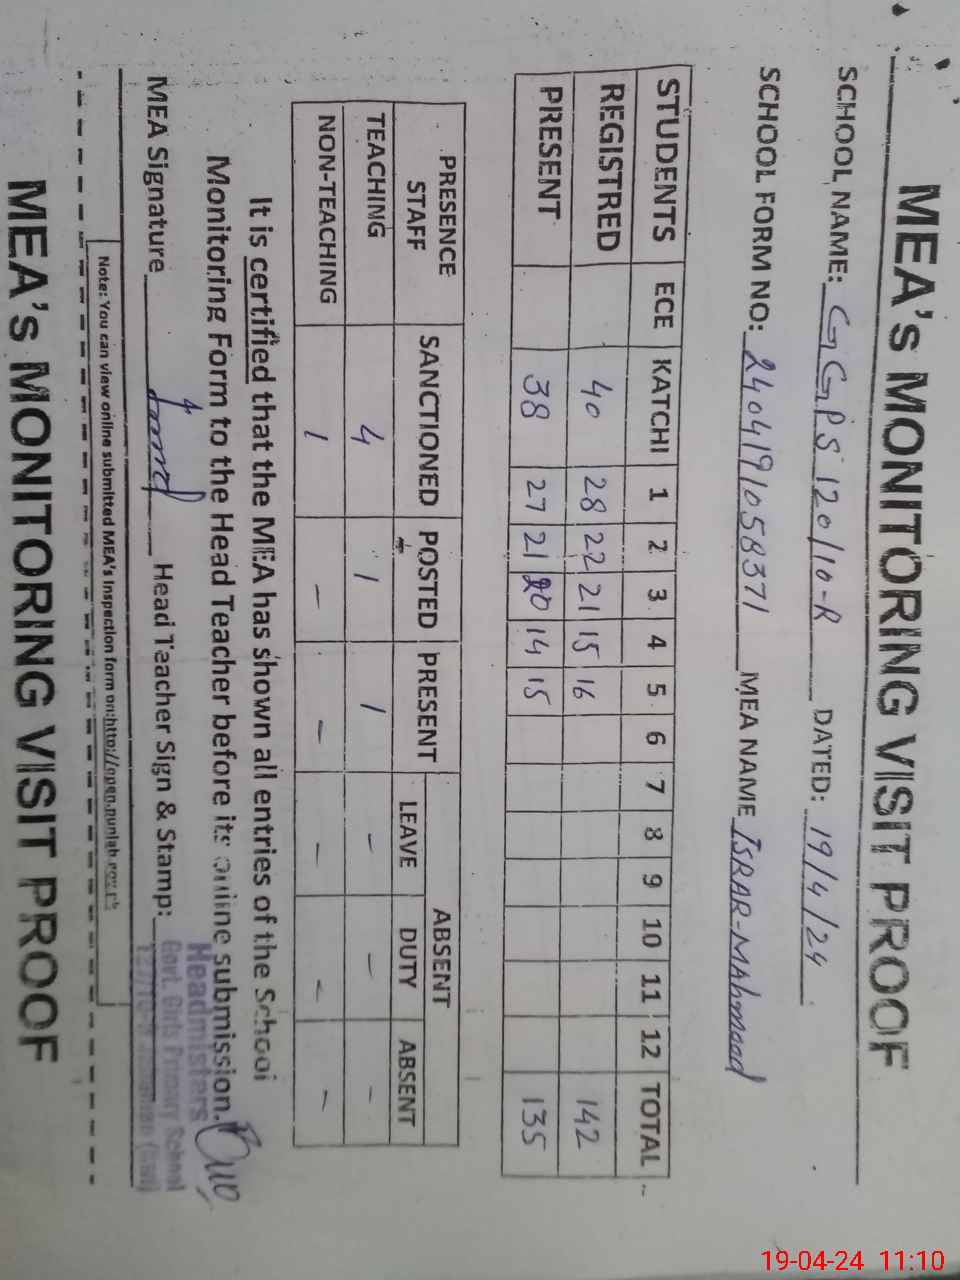 MEA's MONITORING VISIT PROOF
SCHOOL NAME: GGPS 120/10-R DATED: 19/4/24
SCHOOL FORM NO: 2404191058371 MEA NAME ISRAR-MAhmood
STUDENTS ECE KATCHI 1 2 3 4 5 6 7 8 9 10 11 12 TOTAL
REGISTRED 40 28 22 21 15 16 142
PRESENT 38 27 21 20 14 15 135
PRESENCE STAFF SANCTIONED POSTED PRESENT ABSENT
LEAVE DUTY ABSENT
TEACHING 4 1 1 - - -
NON-TEACHING 1 - - - - -
It is certified that the MEA has shown all entries of the School
Monitoring Form to the Head Teacher before its online submission.
MEA Signature Head Teacher Sign & Stamp:
Headmisters
Govt. Girls Primary School
Note: You can view online submitted MEA's Inspection form on:http://open.punjab.gov.pk
MEA's MONITORING VISIT PROOF
19-04-24 11:10